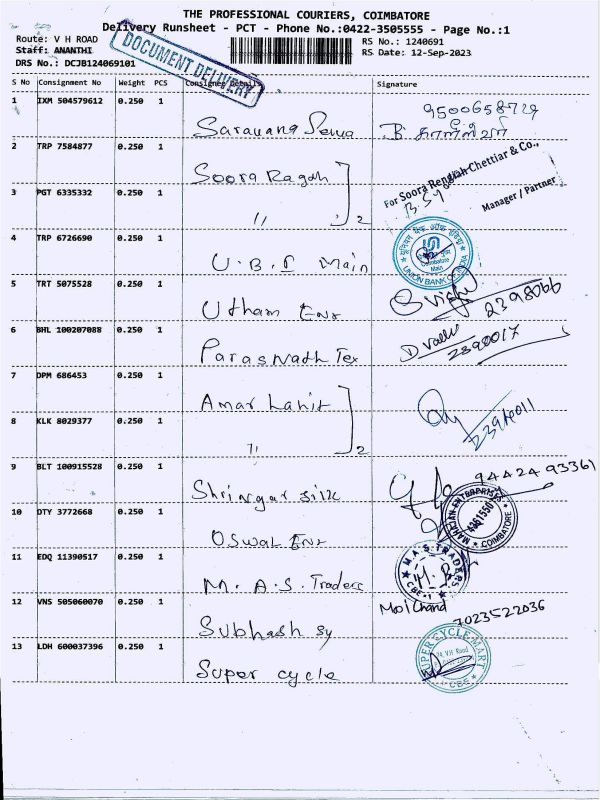 THE PROFESSIONAL COURIERS, COIMBATORE
Delivery Runsheet - PCT - Phone No.:0422-3505555 - Page No.:1
Route: V H ROAD
Staff: ANANTHI
DRS No.: DCJB124069101
DOCUMENT DELIVERY
RS No.: 1240691
RS Date: 12-Sep-2023
S No Consignment No Weight PCS Consignee Details Signature
1 IXM 504579612 0.250 1
9500658729
Saravana
2 TRP 7584877 0.250 1
Soora Ragah
For Soora Rengiah Chettiar & Co.,
Manager / Partner
3 PGT 6335332 0.250 1
〃 2
4 TRP 6726690 0.250 1
U.B.I Main
Coimbatore
Main
UNION BANK OF INDIA
5 TRT 5075528 0.250 1
Utham Ent
2398066
6 BHL 100207088 0.250 1
Parasnath Tex
2390017
7 DPM 686453 0.250 1
Amar Lahit
8 KLK 8029377 0.250 1
〃 2
9 BLT 100915528 0.250 1
Shringar silk
94424 93361
10 DTY 3772668 0.250 1
Oswal Ent
COIMBATORE
11 EDQ 11390517 0.250 1
M.A.S. Traders
M.A.S. TRADERS
CBE-1
12 VNS 505060070 0.250 1
Mool Chand
7023522036
Subhash sy
13 LDH 600037396 0.250 1
Super cycle
SUPER CYCLE MART
V.H. Road
CBE